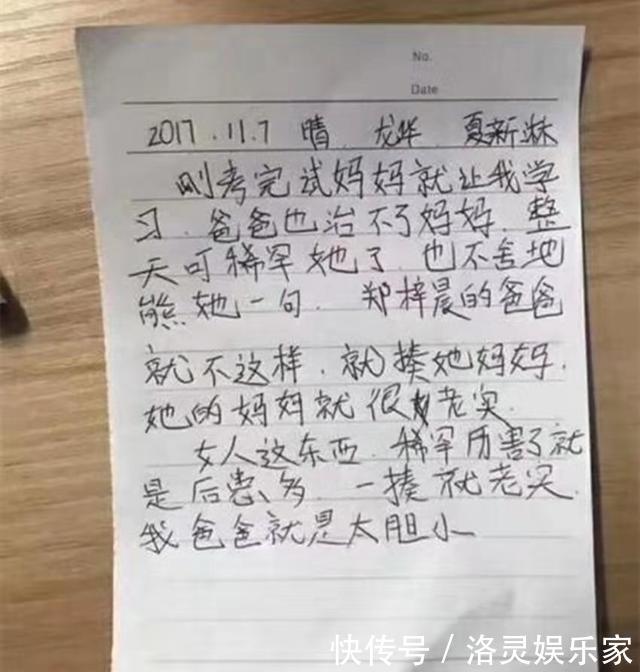 No.
Date
2017.11.7 晴 龙华 夏新淋
刚考完试妈妈就让我学
习.爸爸也治不了妈妈.整
天可稀罕她了.也不舍地
熊她一句.郑梓晨的爸爸
就不这样.就揍她妈妈.
她的妈妈就很老实.
女人这东西.稀罕历害了就
是后患多.一揍就老实.
我爸爸就是太胆小
快传号/洛灵娱乐家